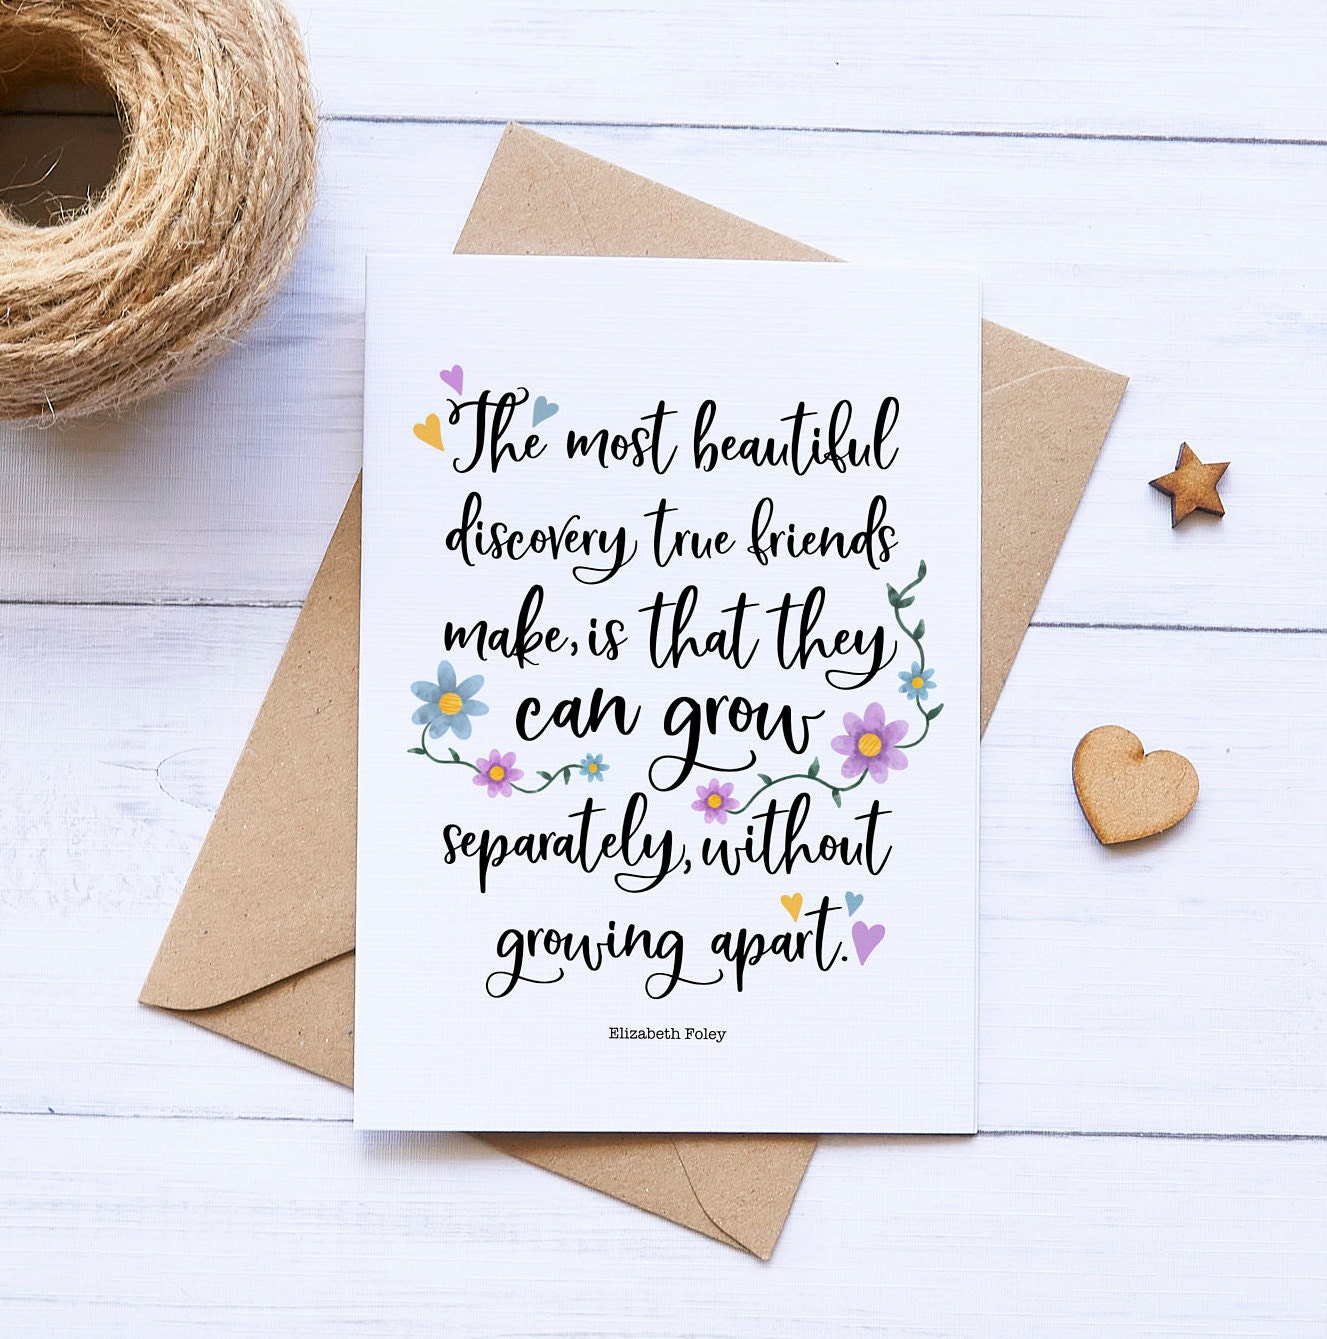 The most beautiful
discovery true friends
make, is that they
can grow
separately, without
growing apart.
Elizabeth Foley